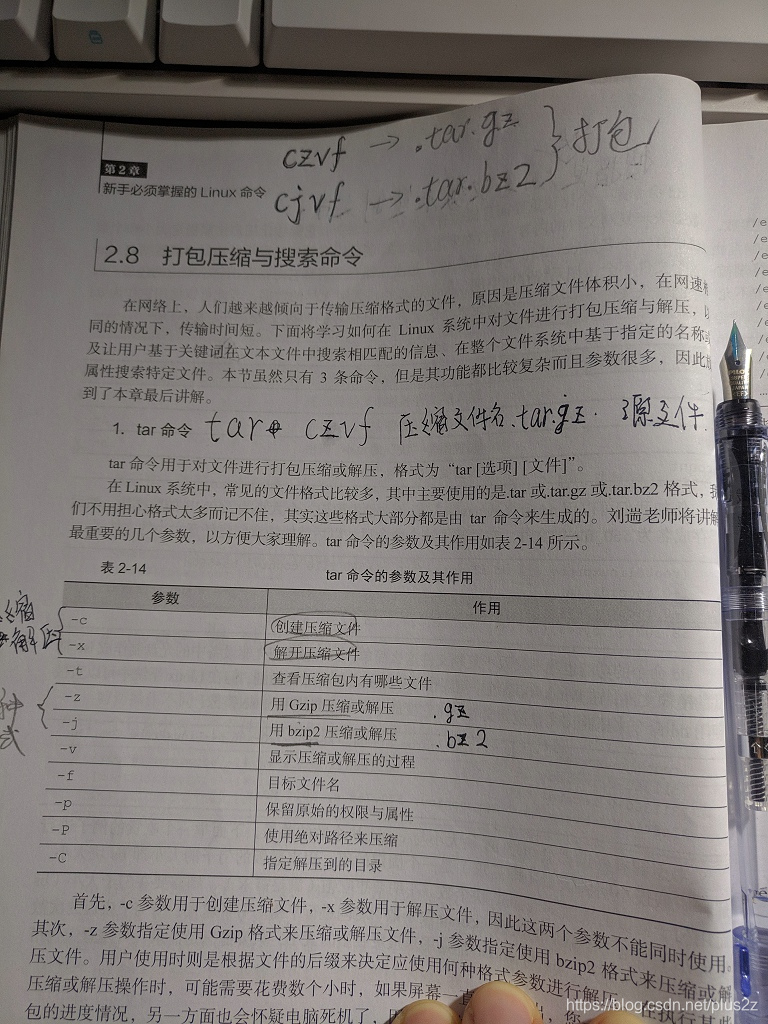 czvf → .tar.gz } 打包
cjvf → .tar.bz2
第2章
新手必须掌握的 Linux 命令
2.8 打包压缩与搜索命令
在网络上，人们越来越倾向于传输压缩格式的文件，原因是压缩文件体积小，在网速相
同的情况下，传输时间短。下面将学习如何在 Linux 系统中对文件进行打包压缩与解压，以
及让用户基于关键词在文本文件中搜索相匹配的信息、在整个文件系统中基于指定的名称或
属性搜索特定文件。本节虽然只有 3 条命令，但是其功能都比较复杂而且参数很多，因此放
到了本章最后讲解。
1. tar 命令 tar czvf 压缩文件名.tar.gz. 源文件
tar 命令用于对文件进行打包压缩或解压，格式为“tar [选项] [文件]”。
在 Linux 系统中，常见的文件格式比较多，其中主要使用的是.tar 或.tar.gz 或.tar.bz2 格式，我
们不用担心格式太多而记不住，其实这些格式大部分都是由 tar 命令来生成的。刘遄老师将讲解
最重要的几个参数，以方便大家理解。tar 命令的参数及其作用如表 2-14 所示。
表 2-14 tar 命令的参数及其作用
参数 作用
-c 创建压缩文件
缩
解压
-x 解开压缩文件
-t 查看压缩包内有哪些文件
-z 用 Gzip 压缩或解压 .gz
种
式
-j 用 bzip2 压缩或解压 .bz2
-v 显示压缩或解压的过程
-f 目标文件名
-p 保留原始的权限与属性
-P 使用绝对路径来压缩
-C 指定解压到的目录
首先，-c 参数用于创建压缩文件，-x 参数用于解压文件，因此这两个参数不能同时使用。
其次，-z 参数指定使用 Gzip 格式来压缩或解压文件，-j 参数指定使用 bzip2 格式来压缩或解
压文件。用户使用时则是根据文件的后缀来决定应使用何种格式参数进行解压。在执行某些
压缩或解压操作时，可能需要花费数个小时，如果屏幕一直
包的进度情况，另一方面也会怀疑电脑死机了，
/e
https://blog.csdn.net/plus2z